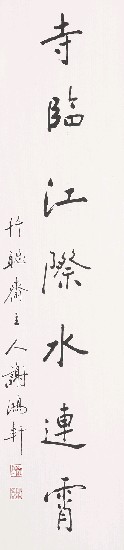 寺臨江際水連霄
竹聪齋主人謝鴻軒